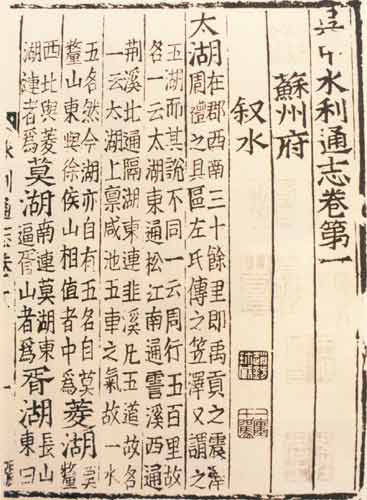 吳中水利通志卷第一
蘇州府
叙水
太湖在郡西南三十餘里即禹貢之震澤
周禮之具區左氏傳之笠澤又謂之
五湖而其說不同一云周行五百里故
名一云太湖東通松江南通霅溪西通
荆溪北通滆湖東連韭溪凡五道故名
一云太湖上禀咸池五車之氣故一水
五名然今湖亦自有五名自莫
釐山東與徐侯山相值者中爲菱湖莫釐
西北與菱湖連者爲莫湖南連莫湖東
逼胥山者爲胥湖長山東曰
水利通志卷